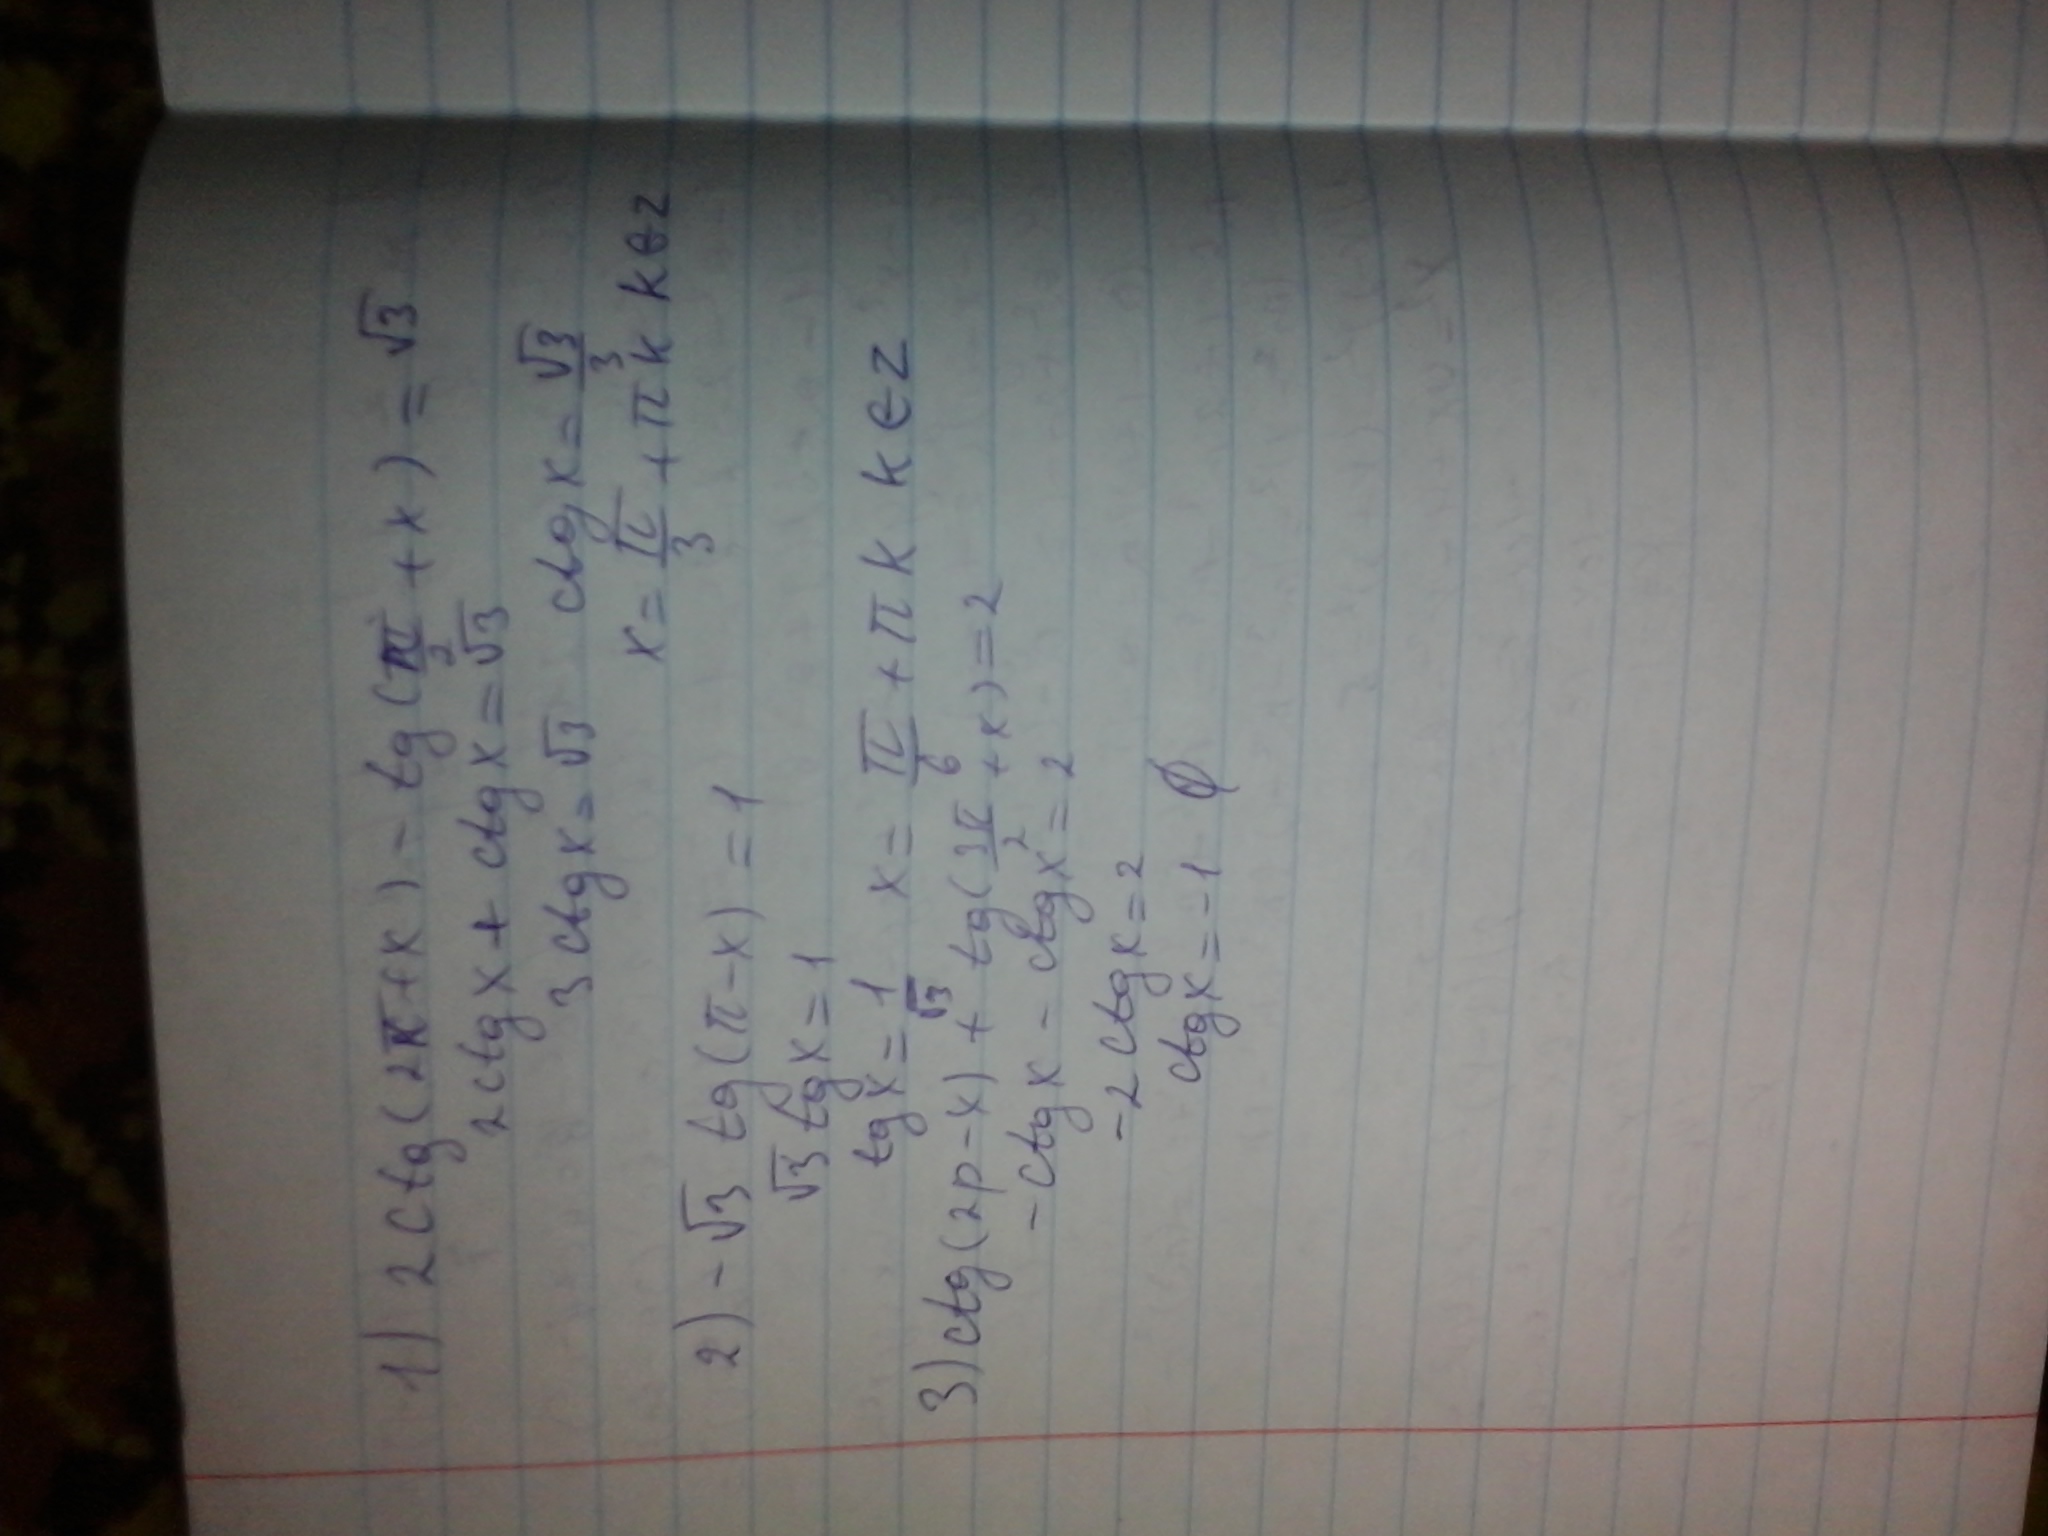 1) 2ctg(2π+x) - tg(π/2 + x) = √3
2ctgx + ctgx = √3
3ctgx = √3 ctgx = √3/3
x = π/3 + πk k∈z
2) -√3 tg(π-x) = 1
√3 tgx = 1
tgx = 1/√3 x = π/6 + πk k∈z
3) ctg(2p-x) + tg(3π/2 + x) = 2
-ctgx - ctgx = 2
-2ctgx = 2
ctgx = -1 ∅